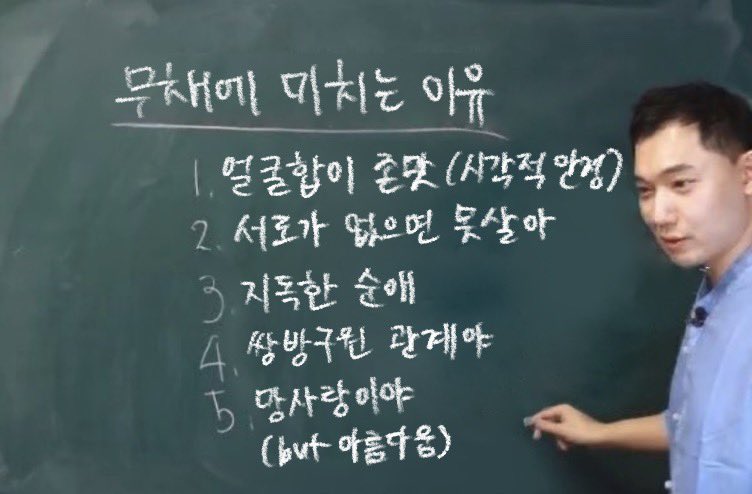 무채에 미치는 이유
1. 얼굴합이 존맛 (시각적 안정)
2. 서로가 없으면 못살아
3. 지독한 순애
4. 쌍방구원 관계야
5. 망사랑이야
(but 아름다움)